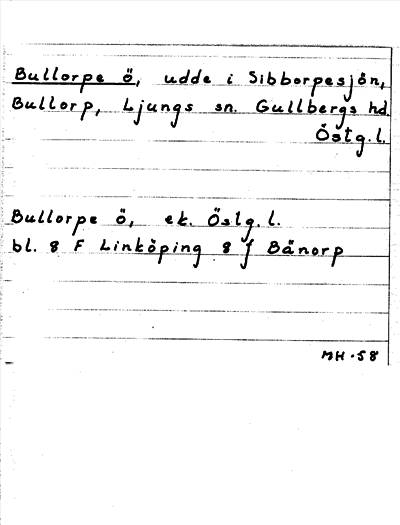 Bullorpe ö, udde i Sibborpesjön,
Bullorp, Ljungs sn. Gullbergs hd.
Östg.l.
Bullorpe ö, ek. Östg.l.
bl. 8 F Linköping 8 f Bänorp
MH-58